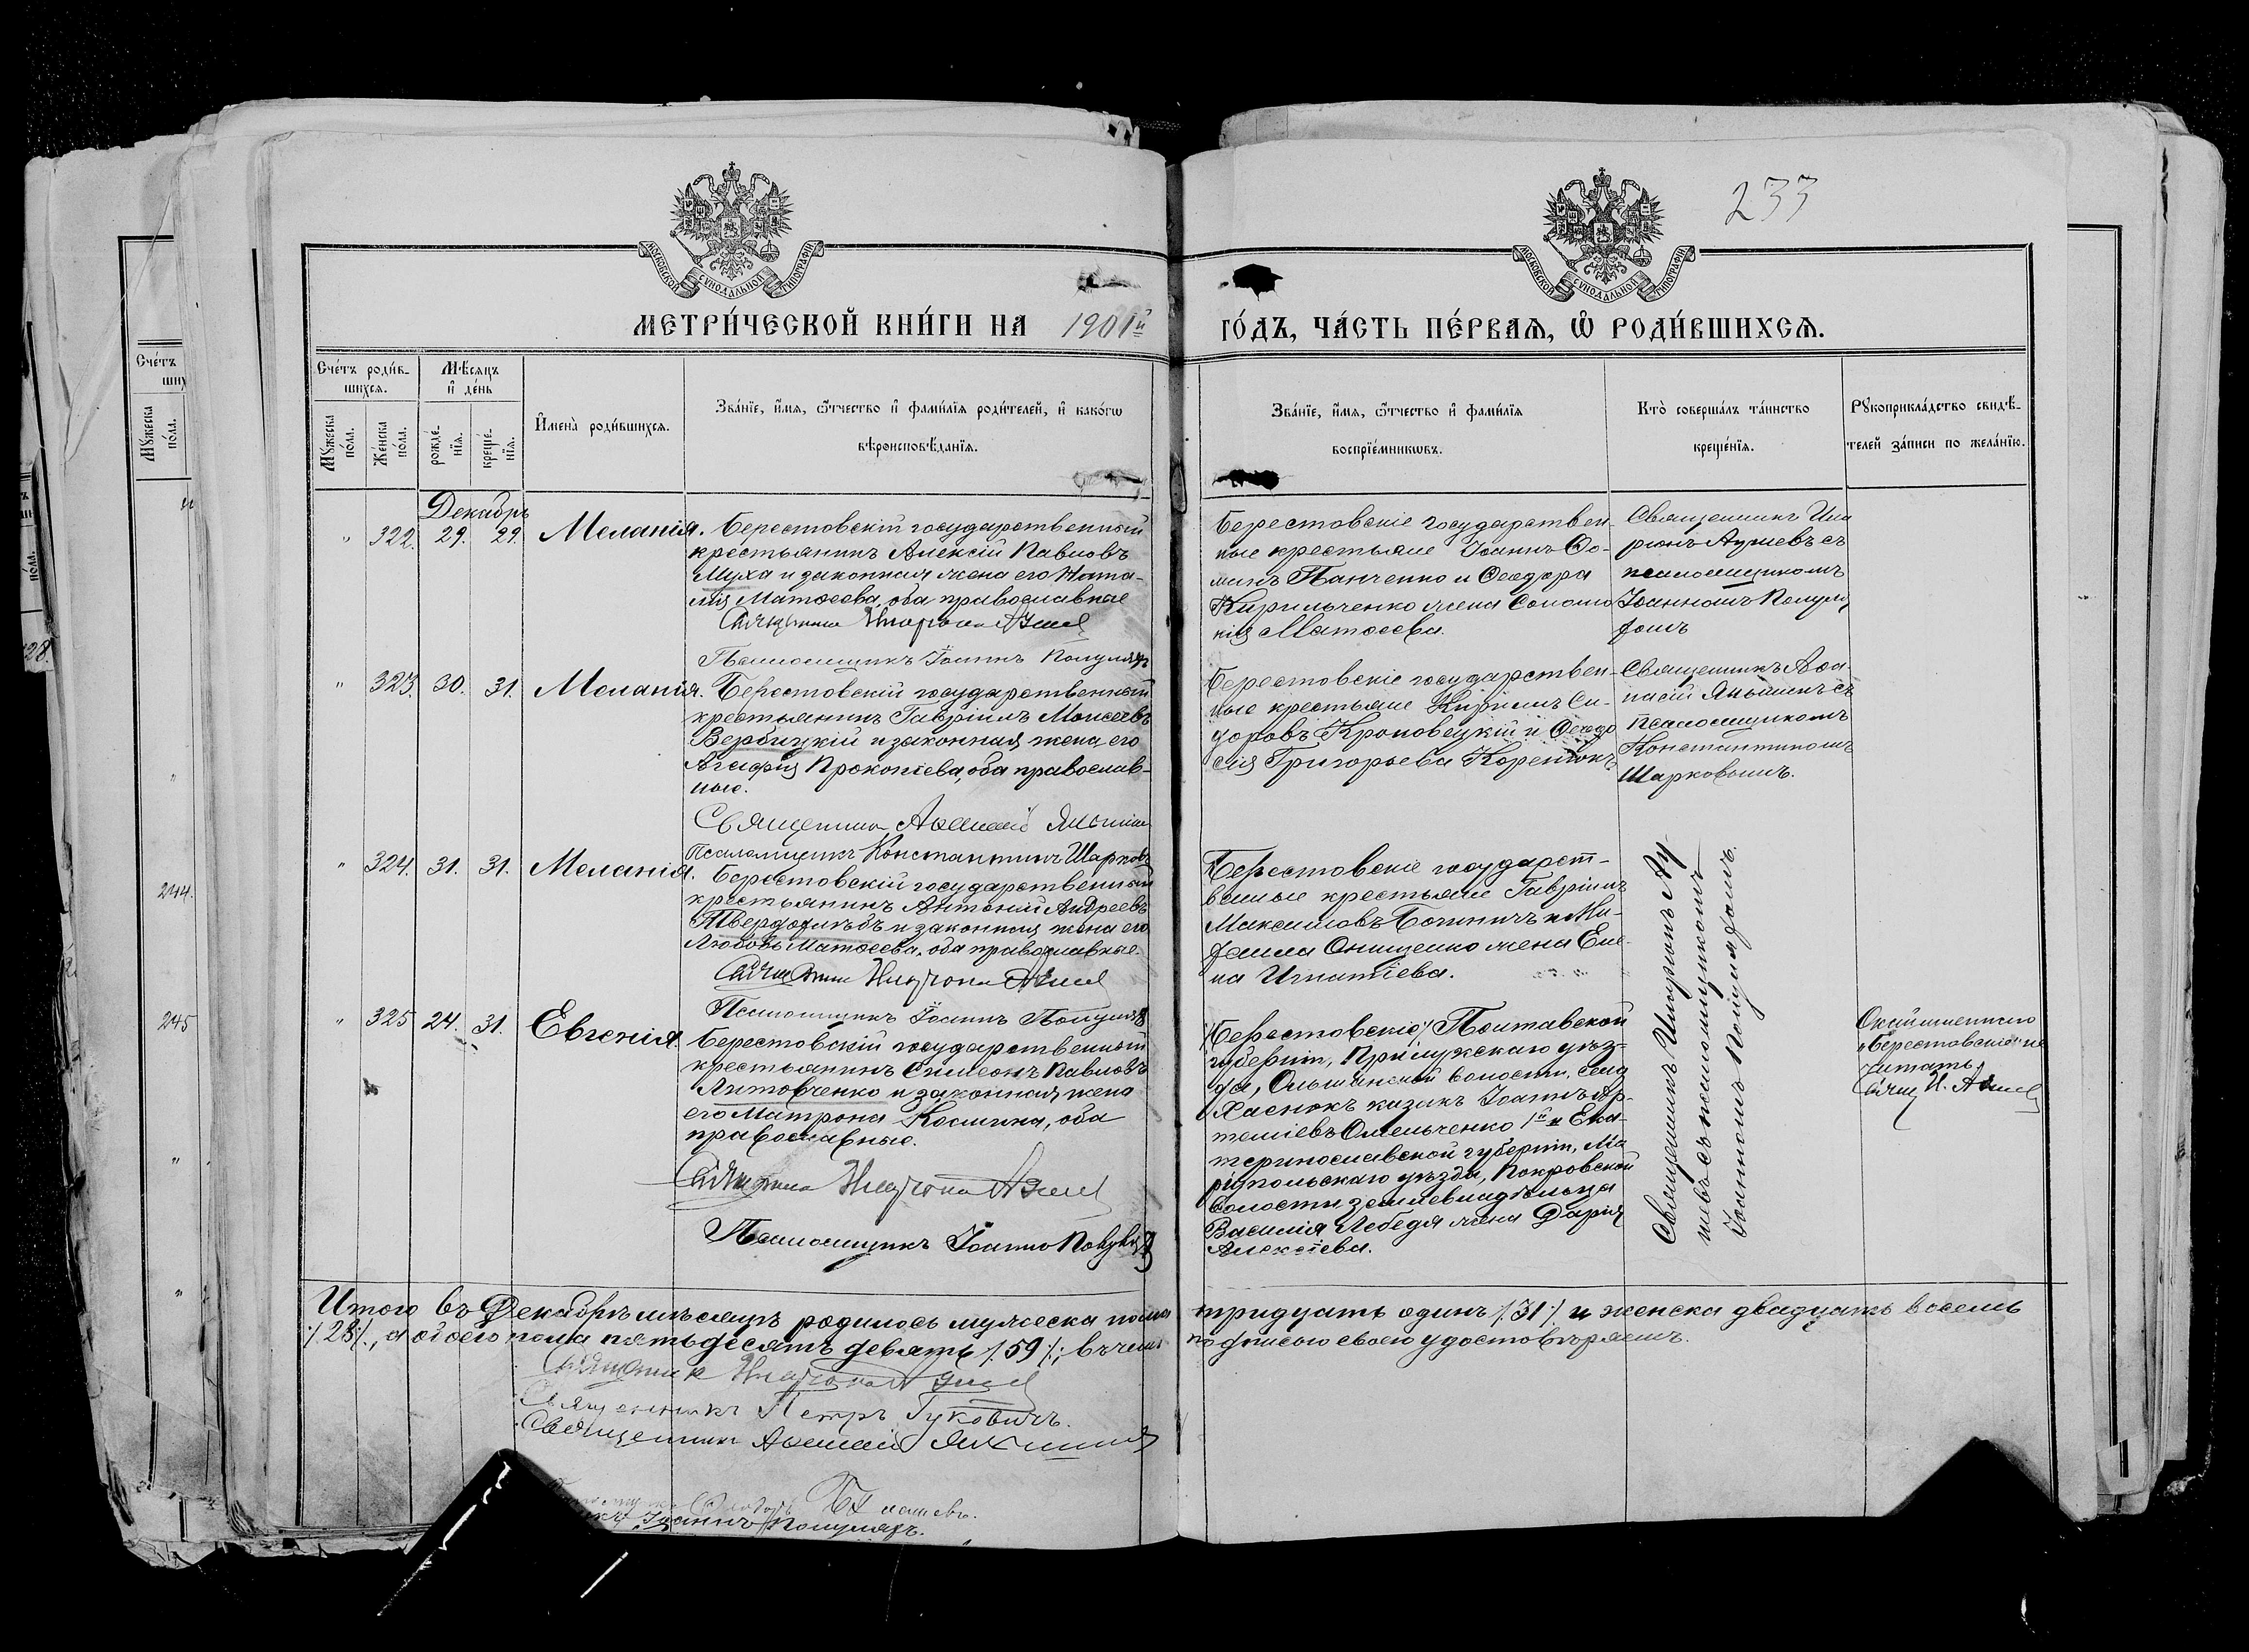 233
МОСКОВСКОЙ СУНОДАЛЬНОЙ ТИПОГРАФІИ
МОСКОВСКОЙ СУНОДАЛЬНОЙ ТИПОГРАФІИ
МЕТРИ́ЧЕСКОЙ КНИ́ГИ НА 1901й ГО́ДЪ, ЧА́СТЬ ПЕ́РВАЯ, Ѡ РОДИ́ВШИХСЯ.
Сче́тъ роди́в-
шихся.
Мѣ́сяцъ
и де́нь
Му́жеска
по́ла.
Же́нска
по́ла.
рожде́-
нїя.
креще́-
нїя.
Имена̀ роди́вшихся.
Зва́нїе, и́мя, ѻ́тчество и фами́лїя роди́телей, и како́гѡ
вѣроисповѣ́данїя.
Зва́нїе, и́мя, ѻ́тчество и фами́лїя
воспрїе́мникѡвъ.
Кто̀ соверша́лъ та́инство
креще́нїя.
Рꙋкоприкла́дство свидѣ́-
телей за́писи по жела́нїю.
Декабрь
" 322. 29. 29. Меланія.
Берестовскій государственный
крестьянинъ Алексій Павловъ
Муха и законная жена его Ната-
лія Матѳеева, оба православные
Псаломщикъ Іоаннъ Популяръ
Берестовскіе государствен-
ные крестьяне Іоаннъ Ѳо-
минъ Панченко и Ѳеодора
Кирильченко жена Соломо
нія Матѳеева.
Священникъ Ила
ріонъ Аушевъ съ
псаломщикомъ
Іоанномъ Популя
ромъ
" 323. 30. 31. Меланія.
Берестовскій государственный
крестьянинъ Гавріилъ Моисеевъ
Вербицкій и законная жена его
Агафія Прокопіева, оба православ-
ные.
Священникъ Аѳанасій Яньшинъ
Псаломщикъ Константинъ Шарковъ
Берестовскіе государствен-
ные крестьяне Кириллъ Си-
доровъ Кроповецкій и Ѳеодо
сія Григорьева Коренюкъ
Священникъ Аѳа-
насій Яньшинъ съ
псаломщикомъ
Константиномъ
Шарковымъ.
" 324. 31. 31. Меланія.
Берестовскій государственный
крестьянинъ Антоній Андреевъ
Твердохлѣбъ и законная жена его
Любовь Матѳеева, оба православные.
Псаломщикъ Іоаннъ Популяръ
Берестовскіе государст-
венные крестьяне Гавріилъ
Максимовъ Богиничъ и Ми-
хаила Онищенко жена Еле-
на Игнатіева.
Священникъ Иларіонъ Ау
шевъ съ псаломщикомъ
Іоанномъ Популяромъ.
" 325 24. 31. Евгенія.
Берестовскій государственный
крестьянинъ Симеонъ Павловъ
Литовченко и законная жена
его Матрона Космина, оба
православные.
Псаломщикъ Іоаннъ Популяръ
Берестовскіе, Полтавской
губерніи, Прилукскаго уѣз-
да, Ольшанской волости, села
Хаенокъ казакъ Іоаннъ Ар-
теміевъ Омельченко 1й и Ека-
теринославской губерніи, Ма
ріупольскаго уѣзда, Покровской
волости землевладѣльца
Василія Лебедя жена Дарія
Алексіева.
Берестовскіе не
читать
Итого въ Декабрѣ мѣсяцѣ родилось мужеска пола тридцать одинъ /31/ и женска двадцать восемь
/28/, а обоего пола пятьдесятъ девять /59/; въ чемъ подписью своею удостовѣряемъ.
Священникъ Петръ Гуковичъ.
Священникъ Аѳанасій Яньшинъ
Іоаннъ Популяръ.
Сче́тъ
Му́жеска
по́ла.
244.
245
28.